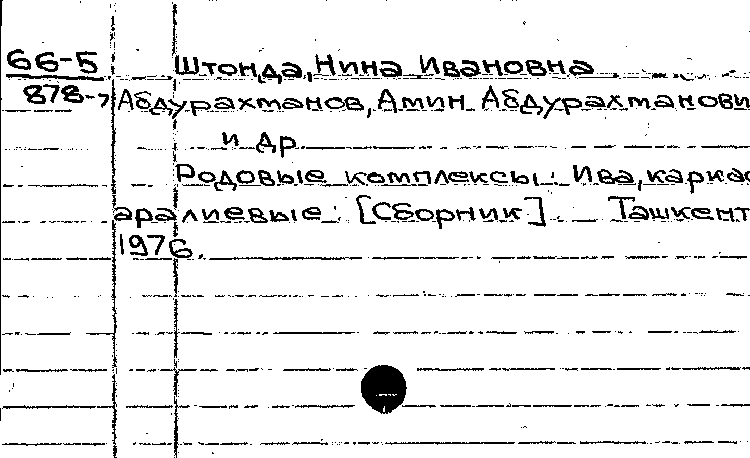 66-5 Штонда, Нина Ивановна
878-7 Абдурахманов, Амин Абдурахманови
и др.
Родовые комплексы: Ива, каркас
аралиевые: [Сборник]. Ташкент
1976.